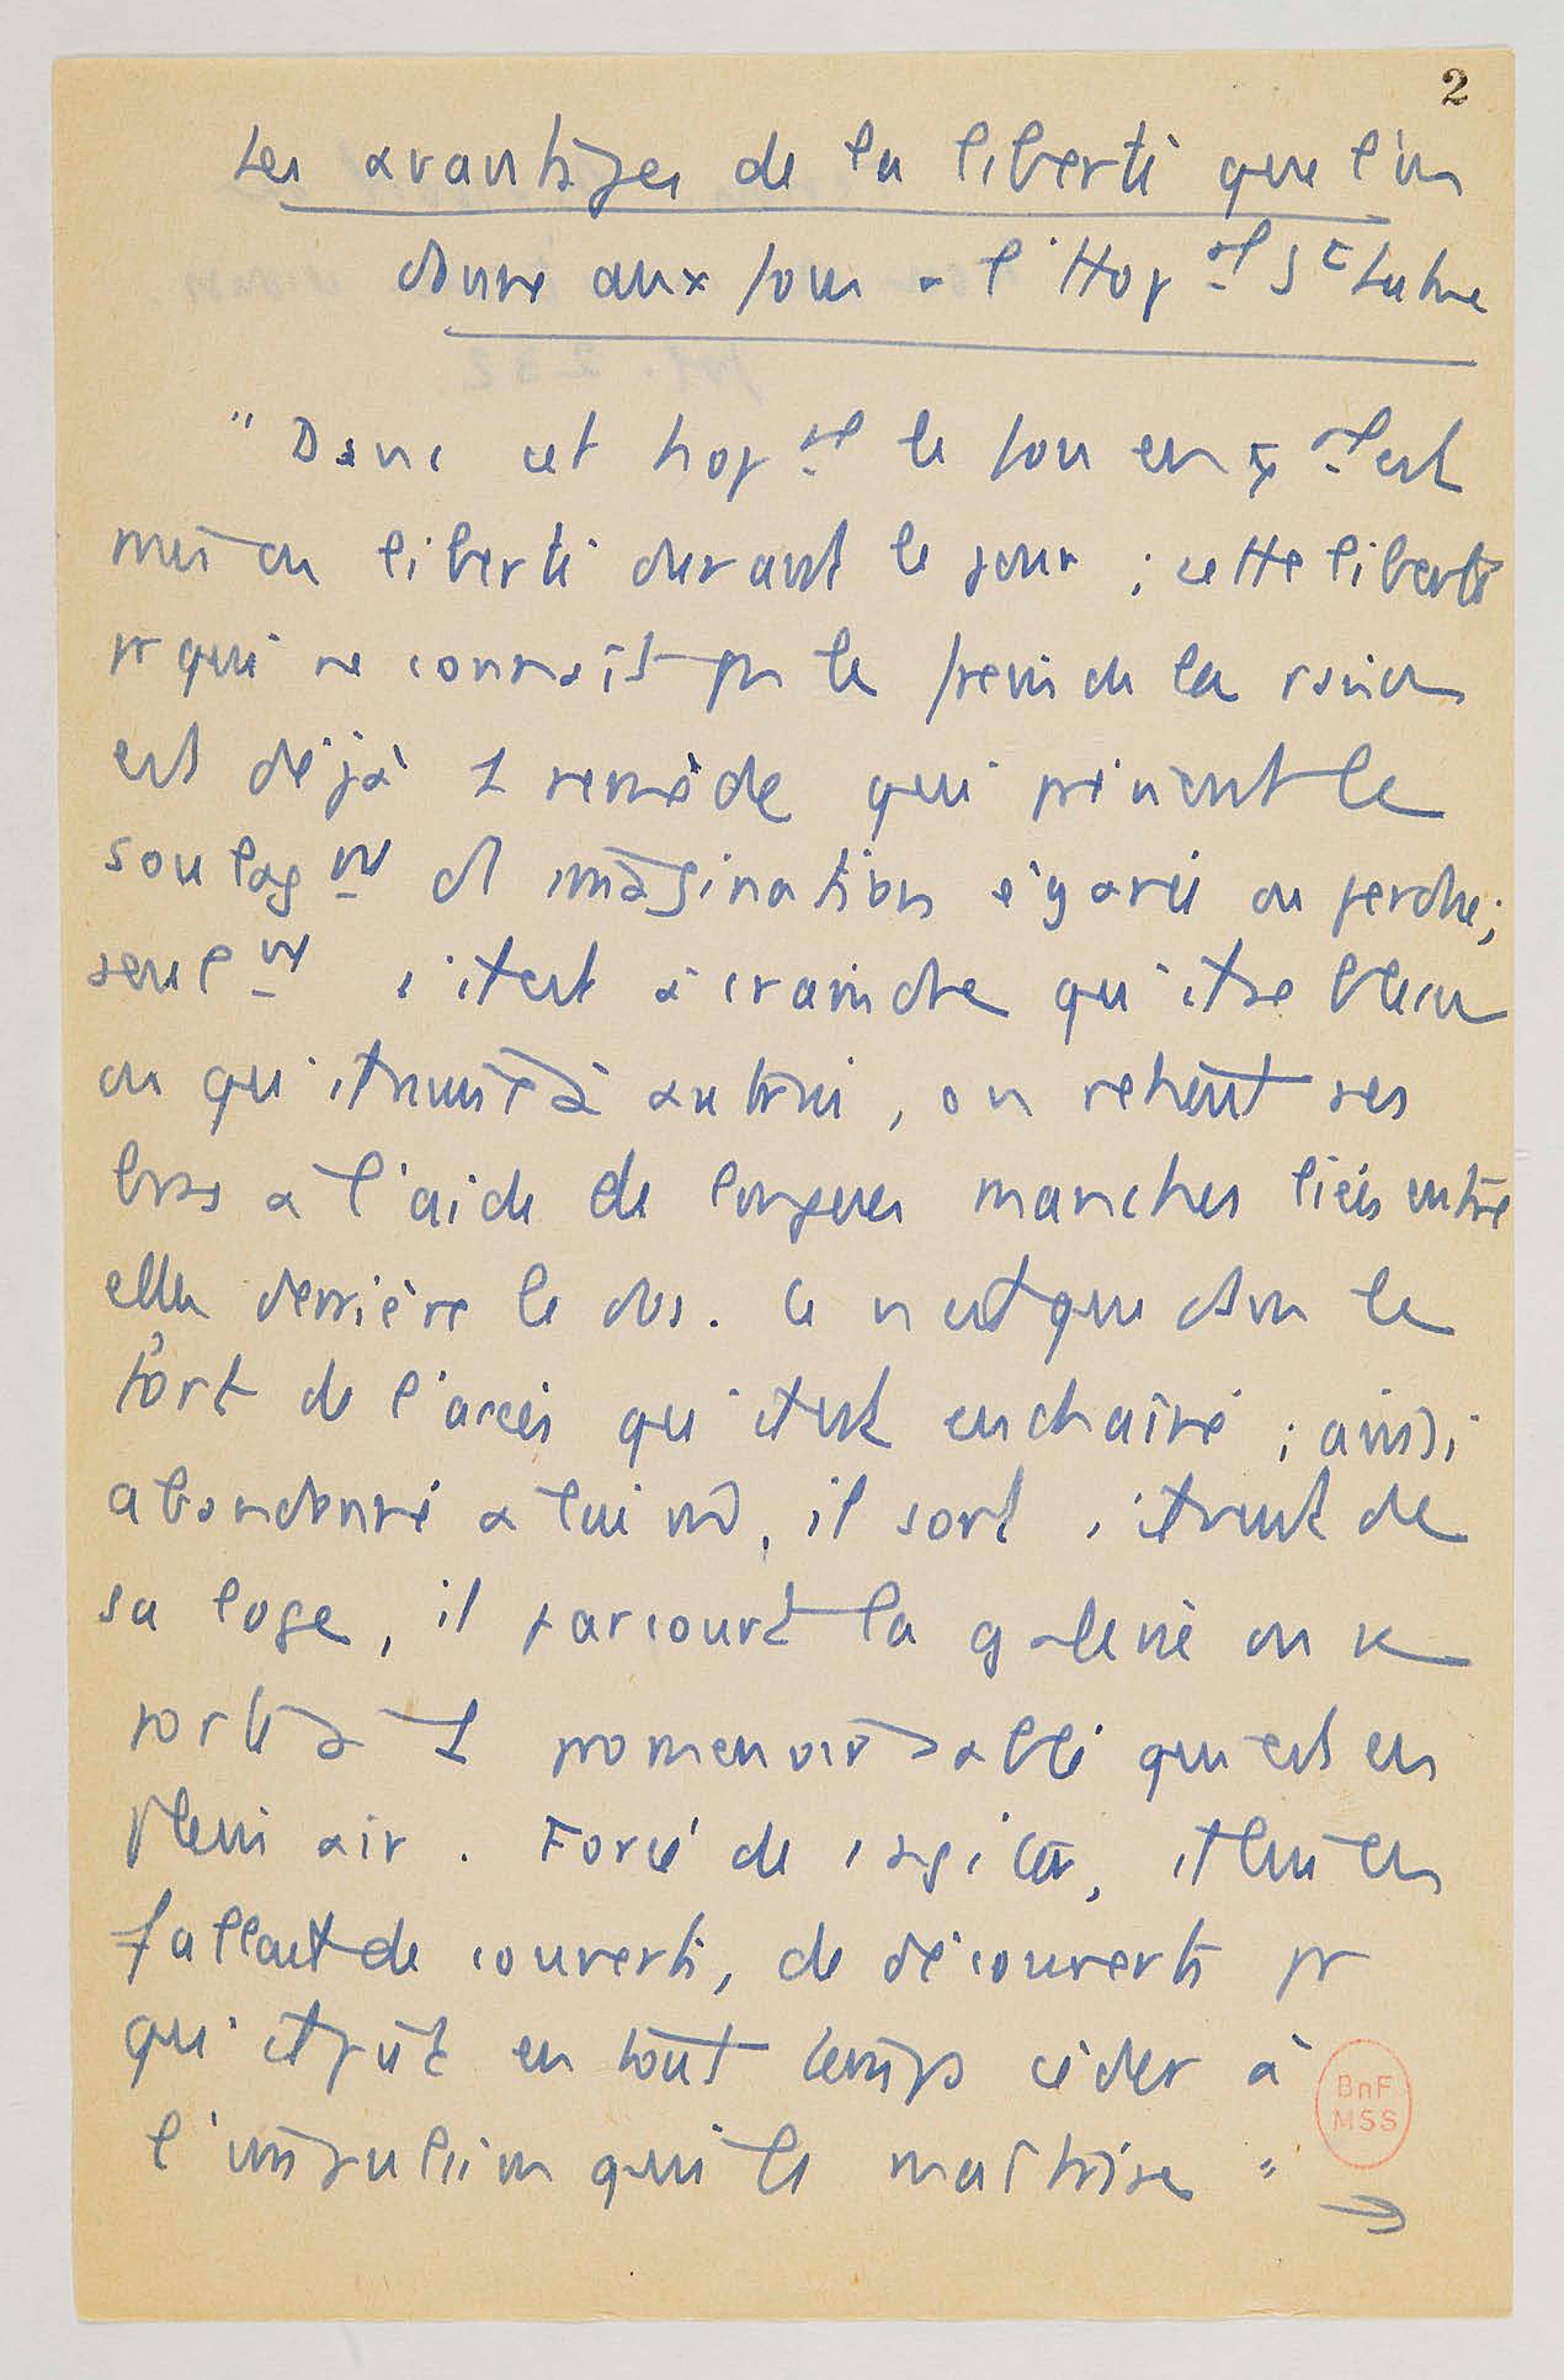 2
Les avantages de la liberté que l'on
donne aux fous à l'Hop^al S^t Luke
" Dans cet hop^al le fou en g^al est
mis en liberté durant le jour ; cette liberté
pr qui ne connaît pas le frein de la raison
est déjà 1 remède qui prévient le
soulag^nt d' imagination égarée ou perdue ;
seul^nt s'il est à craindre qu'il se blesse
ou qu'il nuise à autrui, on retient ses
bras à l'aide de longues manches liées entre
elles derrière le dos. Ce n'est que dans le
fort de l'accès qu'il est enchaîné ; ainsi
abandonné à lui m̂, il sort s'il veut de
sa loge, il parcourt la galerie ou se
porte à 1 promenoir sablé qui est en
plein air. Forcé de s'agiter, il lui en
fallait de couverts, de découverts pr
qu'il pût en tout temps céder à
l'impulsion qui le maîtrise "
→
BnF
MSS